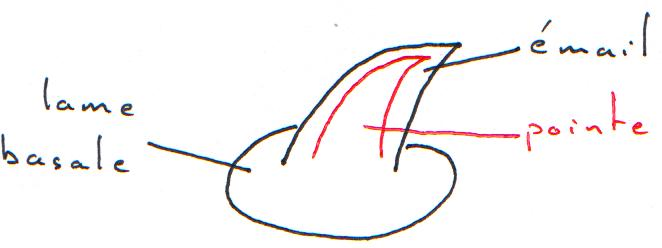 émail
lame
basale
pointe